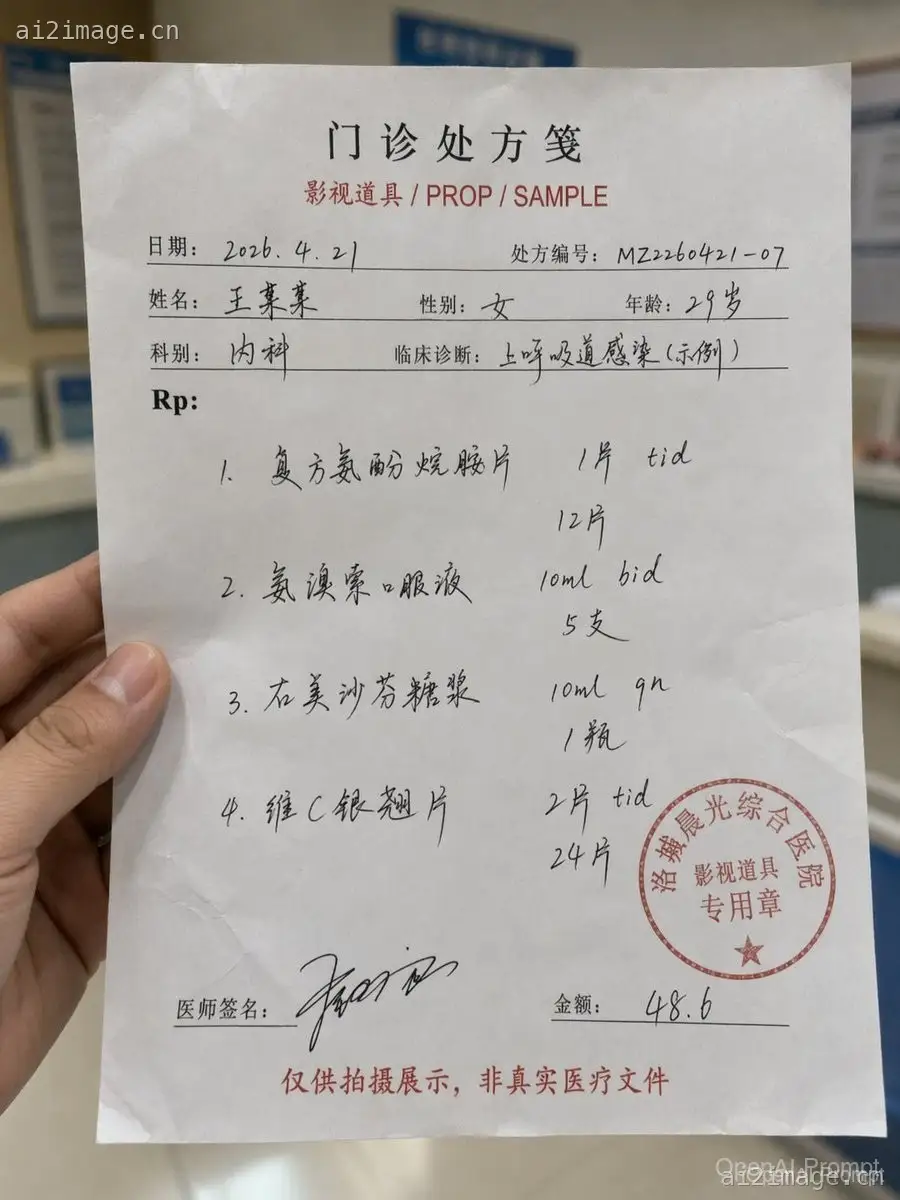 ai2image.cn
门诊处方笺
影视道具 / PROP / SAMPLE
日期: 2026.4.21 处方编号: MZ2260421-07
姓名: 王某某 性别: 女 年龄: 29岁
科别: 内科 临床诊断: 上呼吸道感染(示例)
Rp:
1. 复方氨酚烷胺片 1片 tid
12片
2. 氨溴索口服液 10ml bid
5支
3. 右美沙芬糖浆 10ml qn
1瓶
4. 维C银翘片 2片 tid
24片
洛城晨光综合医院
影视道具
专用章
医师签名:
金额: 48.6
仅供拍摄展示，非真实医疗文件
OpenAI Prompt
ai2image.cn